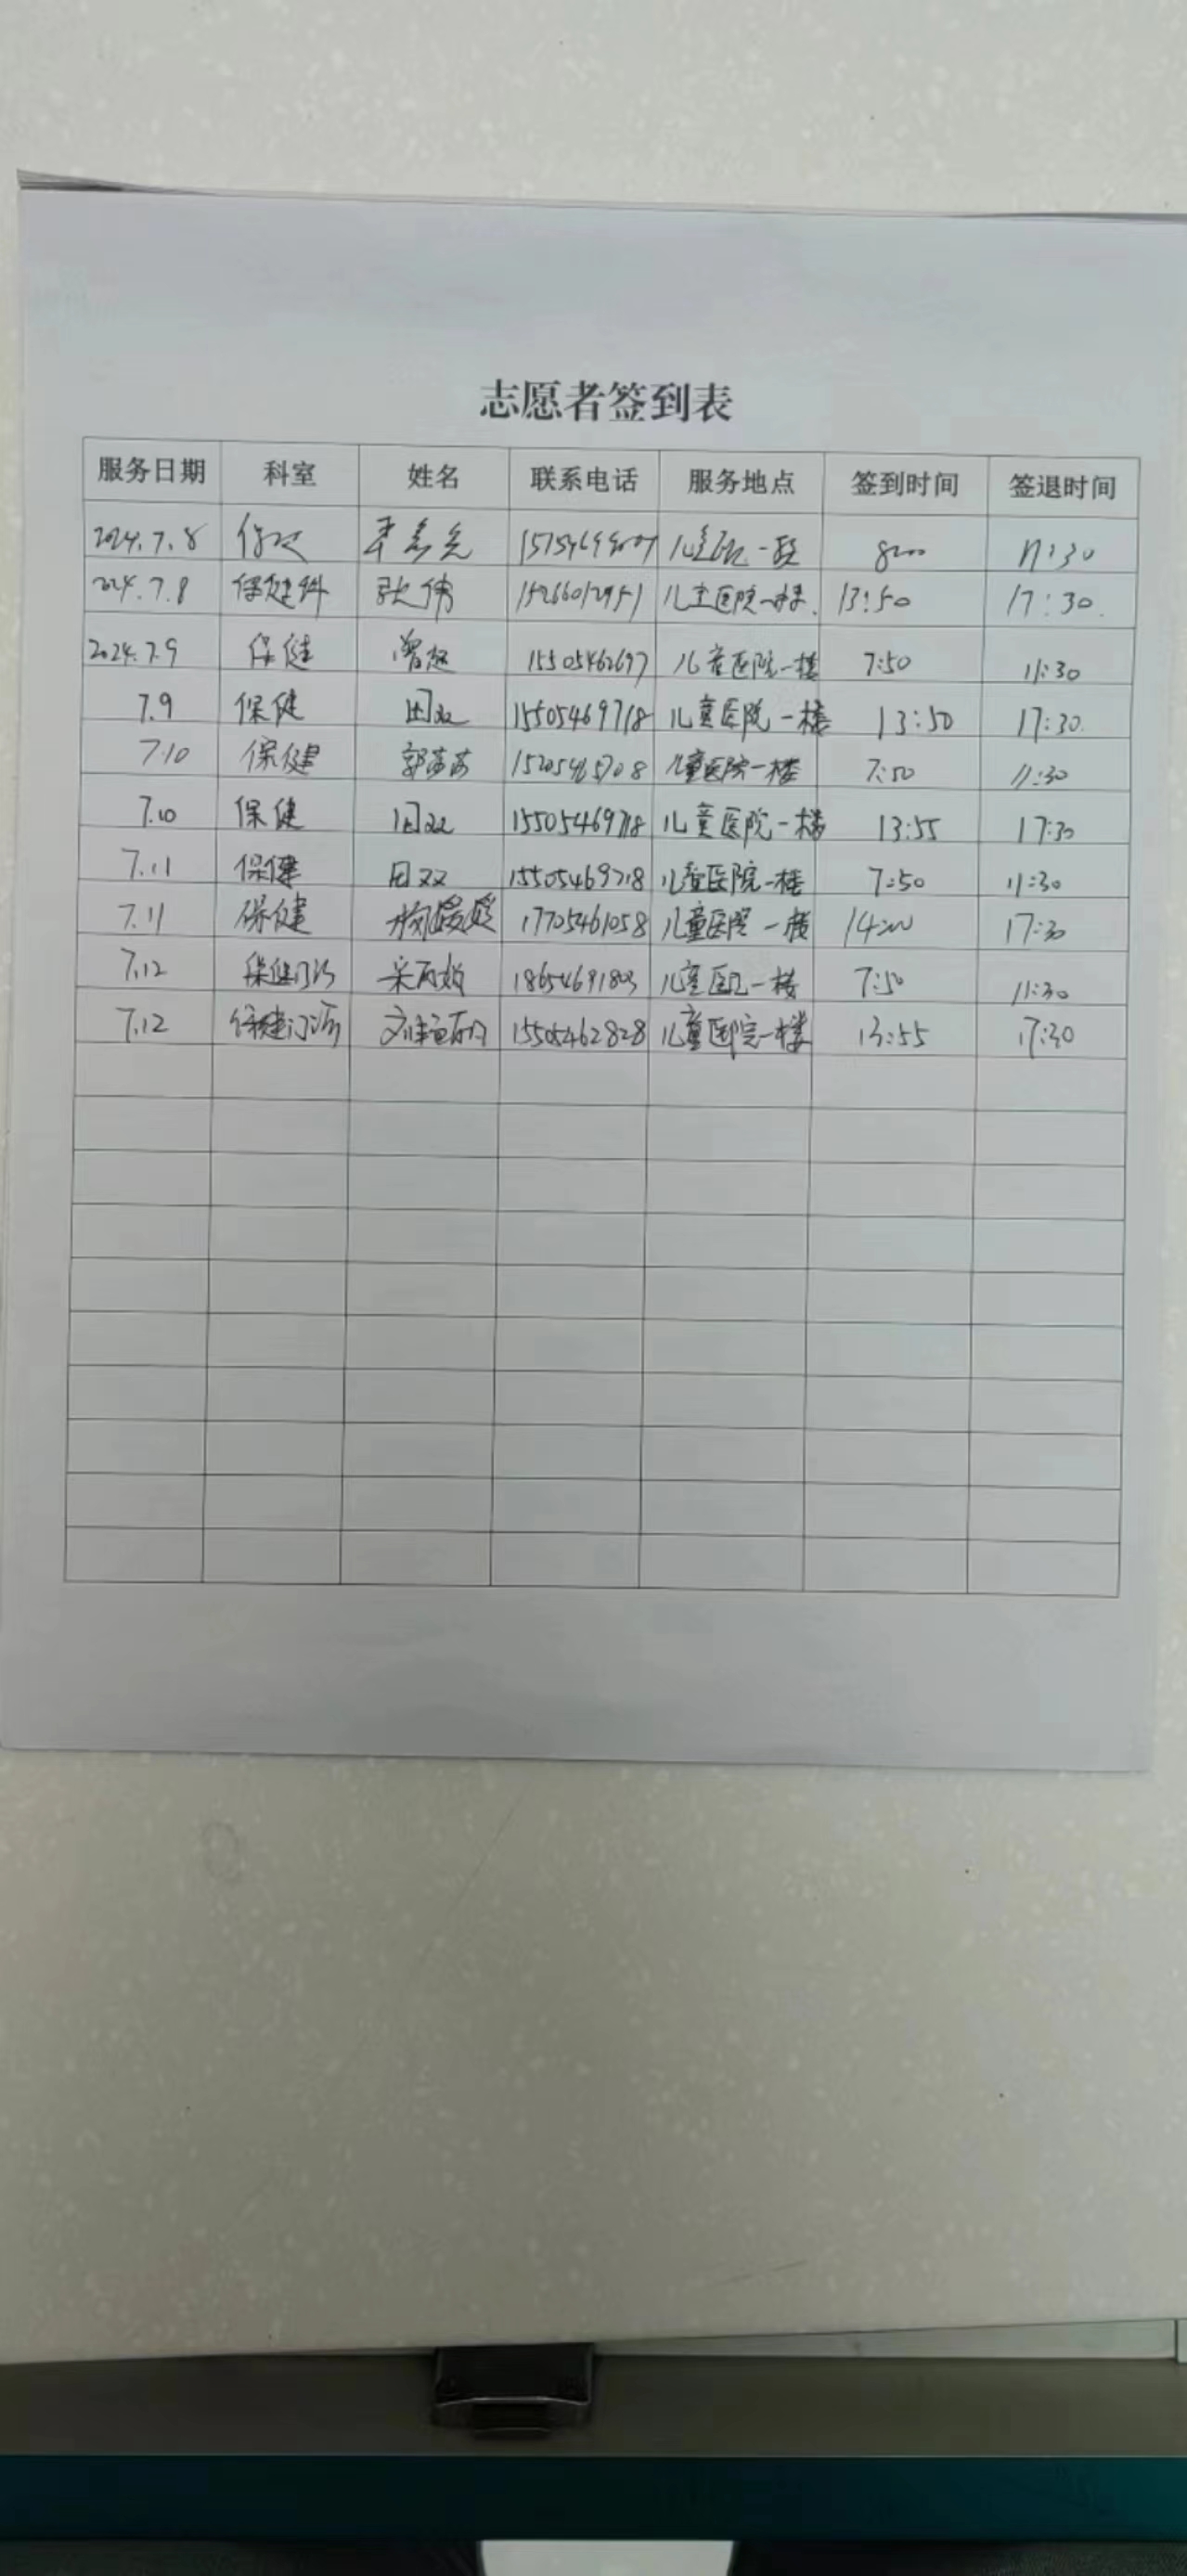 志愿者签到表
服务日期 科室 姓名 联系电话 服务地点 签到时间 签退时间
2024.7.8 一 8:00 11:30
2024.7.8 保健科 张伟 15266012951 儿童医院一楼. 13:50 17:30.
2024.7.9 保健 曾超 15505462697 儿童医院一楼 7:50 11:30
7.9 保健 田双 15505469718 儿童医院一楼 13:50 17:30.
7.10 保健 郭莎莎 儿童医院一楼 7:50 11:30
7.10 保健 田双 15505469718 儿童医院一楼 13:55 17:30
7.11 保健 田双 15505469718 儿童医院一楼 7:50 11:30
7.11 保健 杨媛媛 17705461058 儿童医院一楼 14:00 17:30
7.12 保健门诊 18654691803 儿童医院一楼 7:50 11:30
7.12 保健门诊 15505462828 儿童医院一楼 13:55 17:30